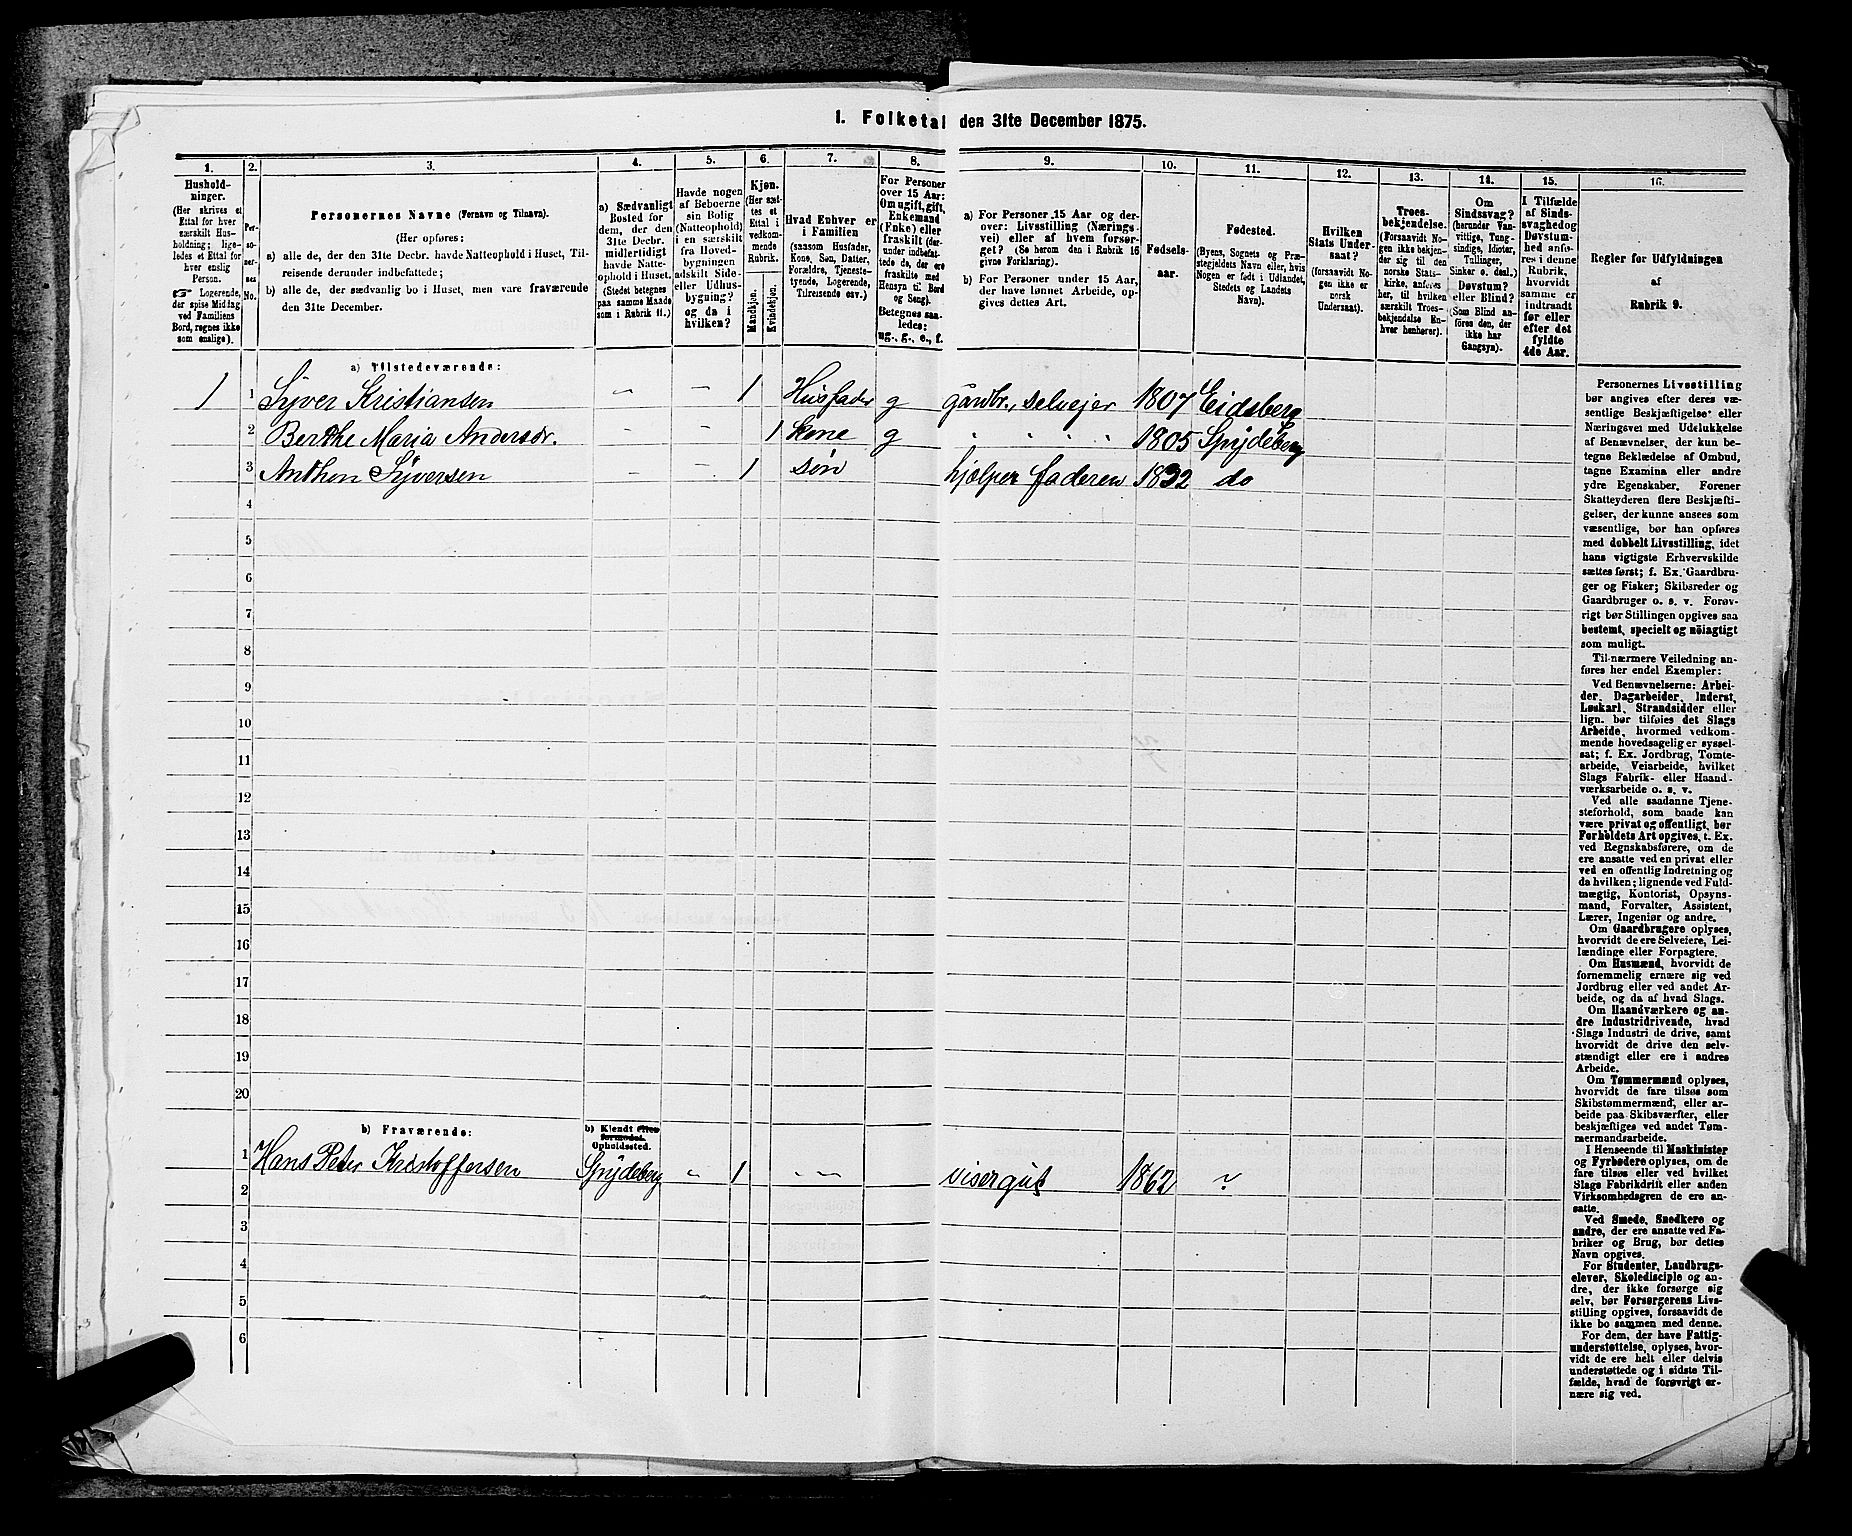 1. Folketal den 31te December 1875.
1. 2. 3. 4. 5. 6. 7. 8. 9. 10. 11. 12. 13. 14. 15. 16.
Hushold-
ninger.
(Her skrives et
Ettal for hver
særskilt Hus-
holdning; lige-
ledes et Ettal for
hver enslig
Person.
☞ Logerende,
der spise Middag
ved Familiens
Bord, regnes ikke
som enslige).
Per-
so-
ner-
nes
No.
Personernes Navne (Fornavn og Tilnavn).
(Her opføres:
a) alle de, der den 31te Decbr. havde Natteophold i Huset, Til-
reisende derunder indbefattede;
b) alle de, der sædvanlig bo i Huset, men vare fraværende
den 31te December.
a) Sædvanligt
Bosted for
dem, der den
31te Decbr.
midlertidigt
havde Natte-
ophold i Huset.
(Stedet betegnes
paa samme Maade
som i Rubrik 11.)
Havde nogen
af Beboerne
sin Bolig
(Natteophold)
i en særskilt
fra Hoved-
bygningen
adskilt Side-
eller Udhus-
bygning?
og da i
hvilken?
Kjøn.
(Her sæt-
tes et
Ettal i
vedkom-
mende
Rubrik.
Mandkjøn.
Kvindekjøn.
Hvad Enhver er
i Familien
(saasom Husfader,
Kone, Søn, Datter,
Forældre, Tjeneste-
tyende, Logerende,
Tilreisende osv.)
For Personer
over 15 Aar:
Om ugift, gift,
Enkemand
(Enke) eller
fraskilt (der-
under indbefat-
tede de, der ere
fraskilte med
Hensyn til Bord
og Seng).
Betegnes saa-
ledes:
ug., g., e., f.
a) For Personer 15 Aar og der-
over: Livsstilling (Nærings-
vei) eller af hvem forsør-
get? (Se herom den i Rubrik 16
givne Forklaring).
b) For Personer under 15 Aar,
der have lønnet Arbeide, op-
gives dettes Art.
Fødsels-
aar.
Fødested.
(Byens, Sognets og Præ-
stegjeldets Navn eller, hvis
Nogen er født i Udlandet,
Stedets og Landets
Navn).
Hvilken
Stats Under-
saat?
(forsaavidt No-
gen ikke er
norsk
Undersaat).
Troes-
bekjendelse.
(Forsaavidt No-
gen ikke bekjen-
der sig til den
norske Stats-
kirke, anføres
her, til hvilken
særskilt Troes-
bekjendelse En-
hver henhører).
Om
Sindssvag?
(herunder Van-
vittige, Tung-
sindige, Idioter,
Tullinger,
Sinker o. desl.)
Døvstum?
eller Blind?
(Som Blind an-
føres den, der
ikke har
Gangsyn).
I Tilfælde
af Sinds-
svaghed og
Døvstum-
hed anfø-
res i denne
Rubrik,
hvorvidt
samme er
indtraadt
før eller
efter det
fyldte
4de Aar.
Regler for Udfyldningen
af
Rubrik 9.
a) Tilstedeværende:
1 1 Syver Kristiansen – – 1 Husfader g gårdbr., selvejer 1807 Eidsberg
2 Berthe Maria Andersdr. – – 1 kone g " " " " 1805 Spydeberg
3 Anthon Syversen – – 1 søn hjælper faderen 1832 do
4
5
6
7
8
9
10
11
12
13
14
15
16
17
18
19
20
b) Fraværende:
b) Kjendt eller
formodet
Opholdssted.
1 Hans Peter Kristoffersen Spydeberg " 1 – – visergut 1862 ?
2
3
4
5
6
Personernes Livsstilling
bør angives efter deres væ-
sentlige Beskjæftigelse eller
Næringsvei med Udelukkelse
af Benævnelser, der kun be-
tegne Beklædelse af Ombud,
tagne Examina eller andre
ydre Egenskaber. Forener
Skatteyderen flere Beskjæfti-
gelser, der kunne ansees som
væsentlige, bør han opføres
med dobbelt Livsstilling, idet
hans vigtigste Erhvervskilde
sættes først; f. Ex. Gaardbru-
ger og Fisker; Skibsreder og
Gaardbruger o. s. v. Forøv-
rigt bør Stillingen opgives saa
bestemt, specielt og nöiagtigt
som muligt.
Til nærmere Veiledning an-
føres her endel Exempler:
Ved Benævnelserne: Arbei-
der, Dagarbeider, Inderst,
Løskarl, Strandsidder eller
lign. bør tilføies det Slags
Arbeide, hvormed vedkom-
mende hovedsagelig er syssel-
sat; f. Ex. Jordbrug, Tomte-
arbeide, Veiarbeide, hvilket
Slags Fabrik- eller Haand-
værksarbeide o. s. v.
Ved alle saadanne Tjene-
steforhold, som baade kan
være privat og offentligt, bør
Forholdets Art opgives, t. Ex.
ved Regnskabsførere, om de
ere ansatte ved en privat eller
ved en offentlig Indretning og
da hvilken; lignende ved Fuld-
mægtig, Kontorist, Opsyns-
mand, Forvalter, Assistent,
Lærer, Ingeniør og andre.
Om Gaardbrugere oplyses,
hvorvidt de ere Selveiere, Lei-
lændinge eller Forpagtere.
Om Husmænd, hvorvidt de
fornemmelig ernære sig ved
Jordbrug eller ved andet Ar-
beide, og da af hvad Slags.
Om Haandværkere og an-
dre Industridrivende, hvad
Slags Industri de drive, samt
hvorvidt de drive den selv-
stændigt eller ere i andres
Arbeide.
Om Tømmermænd oplyses,
hvorvidt de fare tilsøs som
Skibstømmermænd, eller ar-
beide paa Skibsværfter, eller
beskjæftiges ved andet Tøm-
mermandsarbeide.
I Henseende til Maskinister
og Fyrbødere oplyses, om de
fare tilsøs eller ved hvilket
Slags Fabrikdrift eller anden
Virksomhedsgren de ere an-
satte.
Ved Smede, Snedkere og
andre, der ere ansatte ved Fa-
briker og Brug, bør dettes
Navn opgives.
For Studenter, Landbrugs-
elever, Skoledisciple og an-
dre, der ikke forsørge sig
selv, bør Forsørgerens Livs-
stilling opgives, forsaavidt de
ikke bo sammen med denne.
For dem, der have Fattig-
understøttelse, oplyses, hvor-
vidt de ere helt eller delvis
understøttede og i sidste Til-
fælde, hvad de forøvrigt er-
nære sig ved.